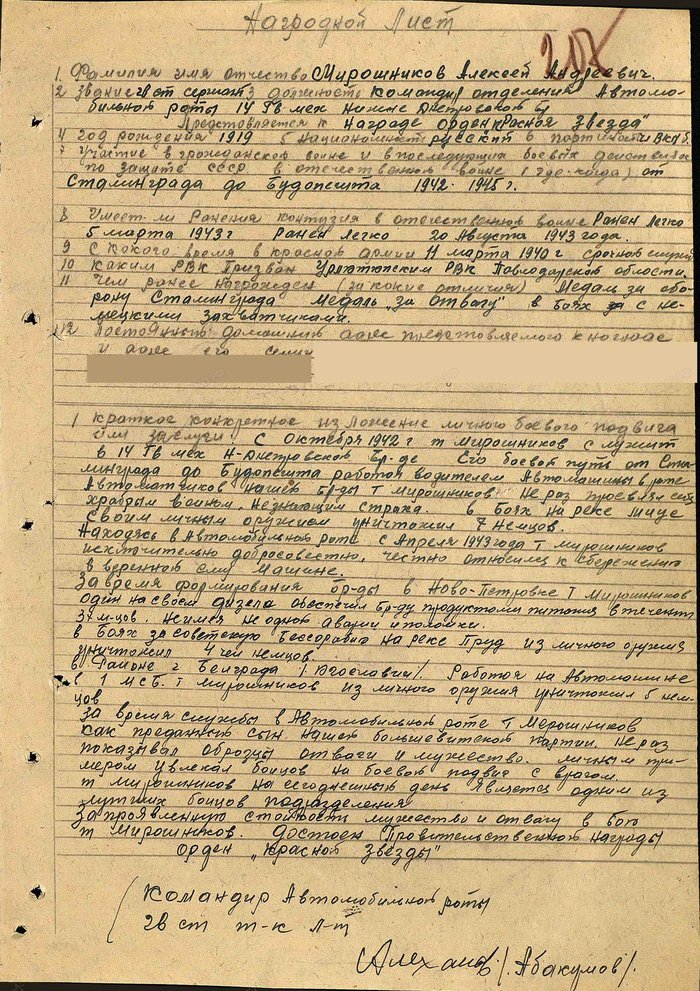 Наградной Лист
1 Фамилия имя отчество Мирошников Алексей Андреевич.
2 Звание гв ст сержант 3 должность Командир отделения Автомо-
бильной роты 14 Гв мех Нижне Днепровской
Представляется к Награде орден "Красная Звезда"
4 год рождения 1919 5 национальность русский 6 партийность ВКП б.
7 Участие в гражданской войне и в последующих боевых действиях
по защите СССР в отечественной войне (где-когда) от
Сталинграда до Будопешта 1942-1945 г.
8 Имеет-ли Ранения контузия в отечественной войне Ранен Легко
5 марта 1943 г Ранен Легко 20 Августа 1943 года.
9 С какого время в красной армии 11 марта 1940 г срочной служб
10 каким РВК Призван Урлютюпским РВК Павлодарской области.
11 Чем ранее награжден (за какие отличия) Медаль за обо-
рону Сталинграда Медаль "за отвагу" в боях за с не-
мецкими захватчиками.
12 Постоянный домашний адрес представляемого к награде
и адрес его семьи
1 краткое конкретное изложение личного боевого подвига
или заслуги. С Октября 1942 г т Мирошников служит
в 14 Гв мех Н-Днепровской Бр-де Его боевой путь от Ста-
линграда до Будопешта работая водителем Автомашины в роте
Автоматчиков нашей бр-ды т Мирошников. Не раз проевлял себя
храбрым воином, незнающим страха. в боях на реке
своим личным оружием уничтожил 7 немцов.
Находясь в Автомобильной роте с Апреля 1943 года т Мирошников
исключительно добросовестно, честно относился к сбережению
вверенной ему машине.
За время формирования бр-ды в Ново-Петровке т Мирошников
один на своем дизеле обеспечил бр-ду продуктами питания в течени
3х м-цов. Неимея не одной аварии и поломки.
в боях за советскую Бессорабию на реке Пруд из личного оружия
уничтожил 4 чел немцов.
в Районе г Белграда /Югославия/. Работая на Автомашине
в 1 МСБ. т Мирошников из личного оружия уничтожил 6 нем-
цов
За время службы в Автомобильной роте т Мерошников
как преданный сын нашей большевитской партии. Не раз
показывал образцы отваги и мужество. личным при-
мером увлекал бойцов на боевой подвиг с врагом.
т Мирошников на сегоднешный день является одним из
лутших бойцов подразделения
За проявленную стойкость мужество и отвагу в бою
т Мирошников. достоен Правительственной награды
орден "Красной Звезды"
Командир Автомобильной роты
гв ст т-к л-т
/Абакумов/.